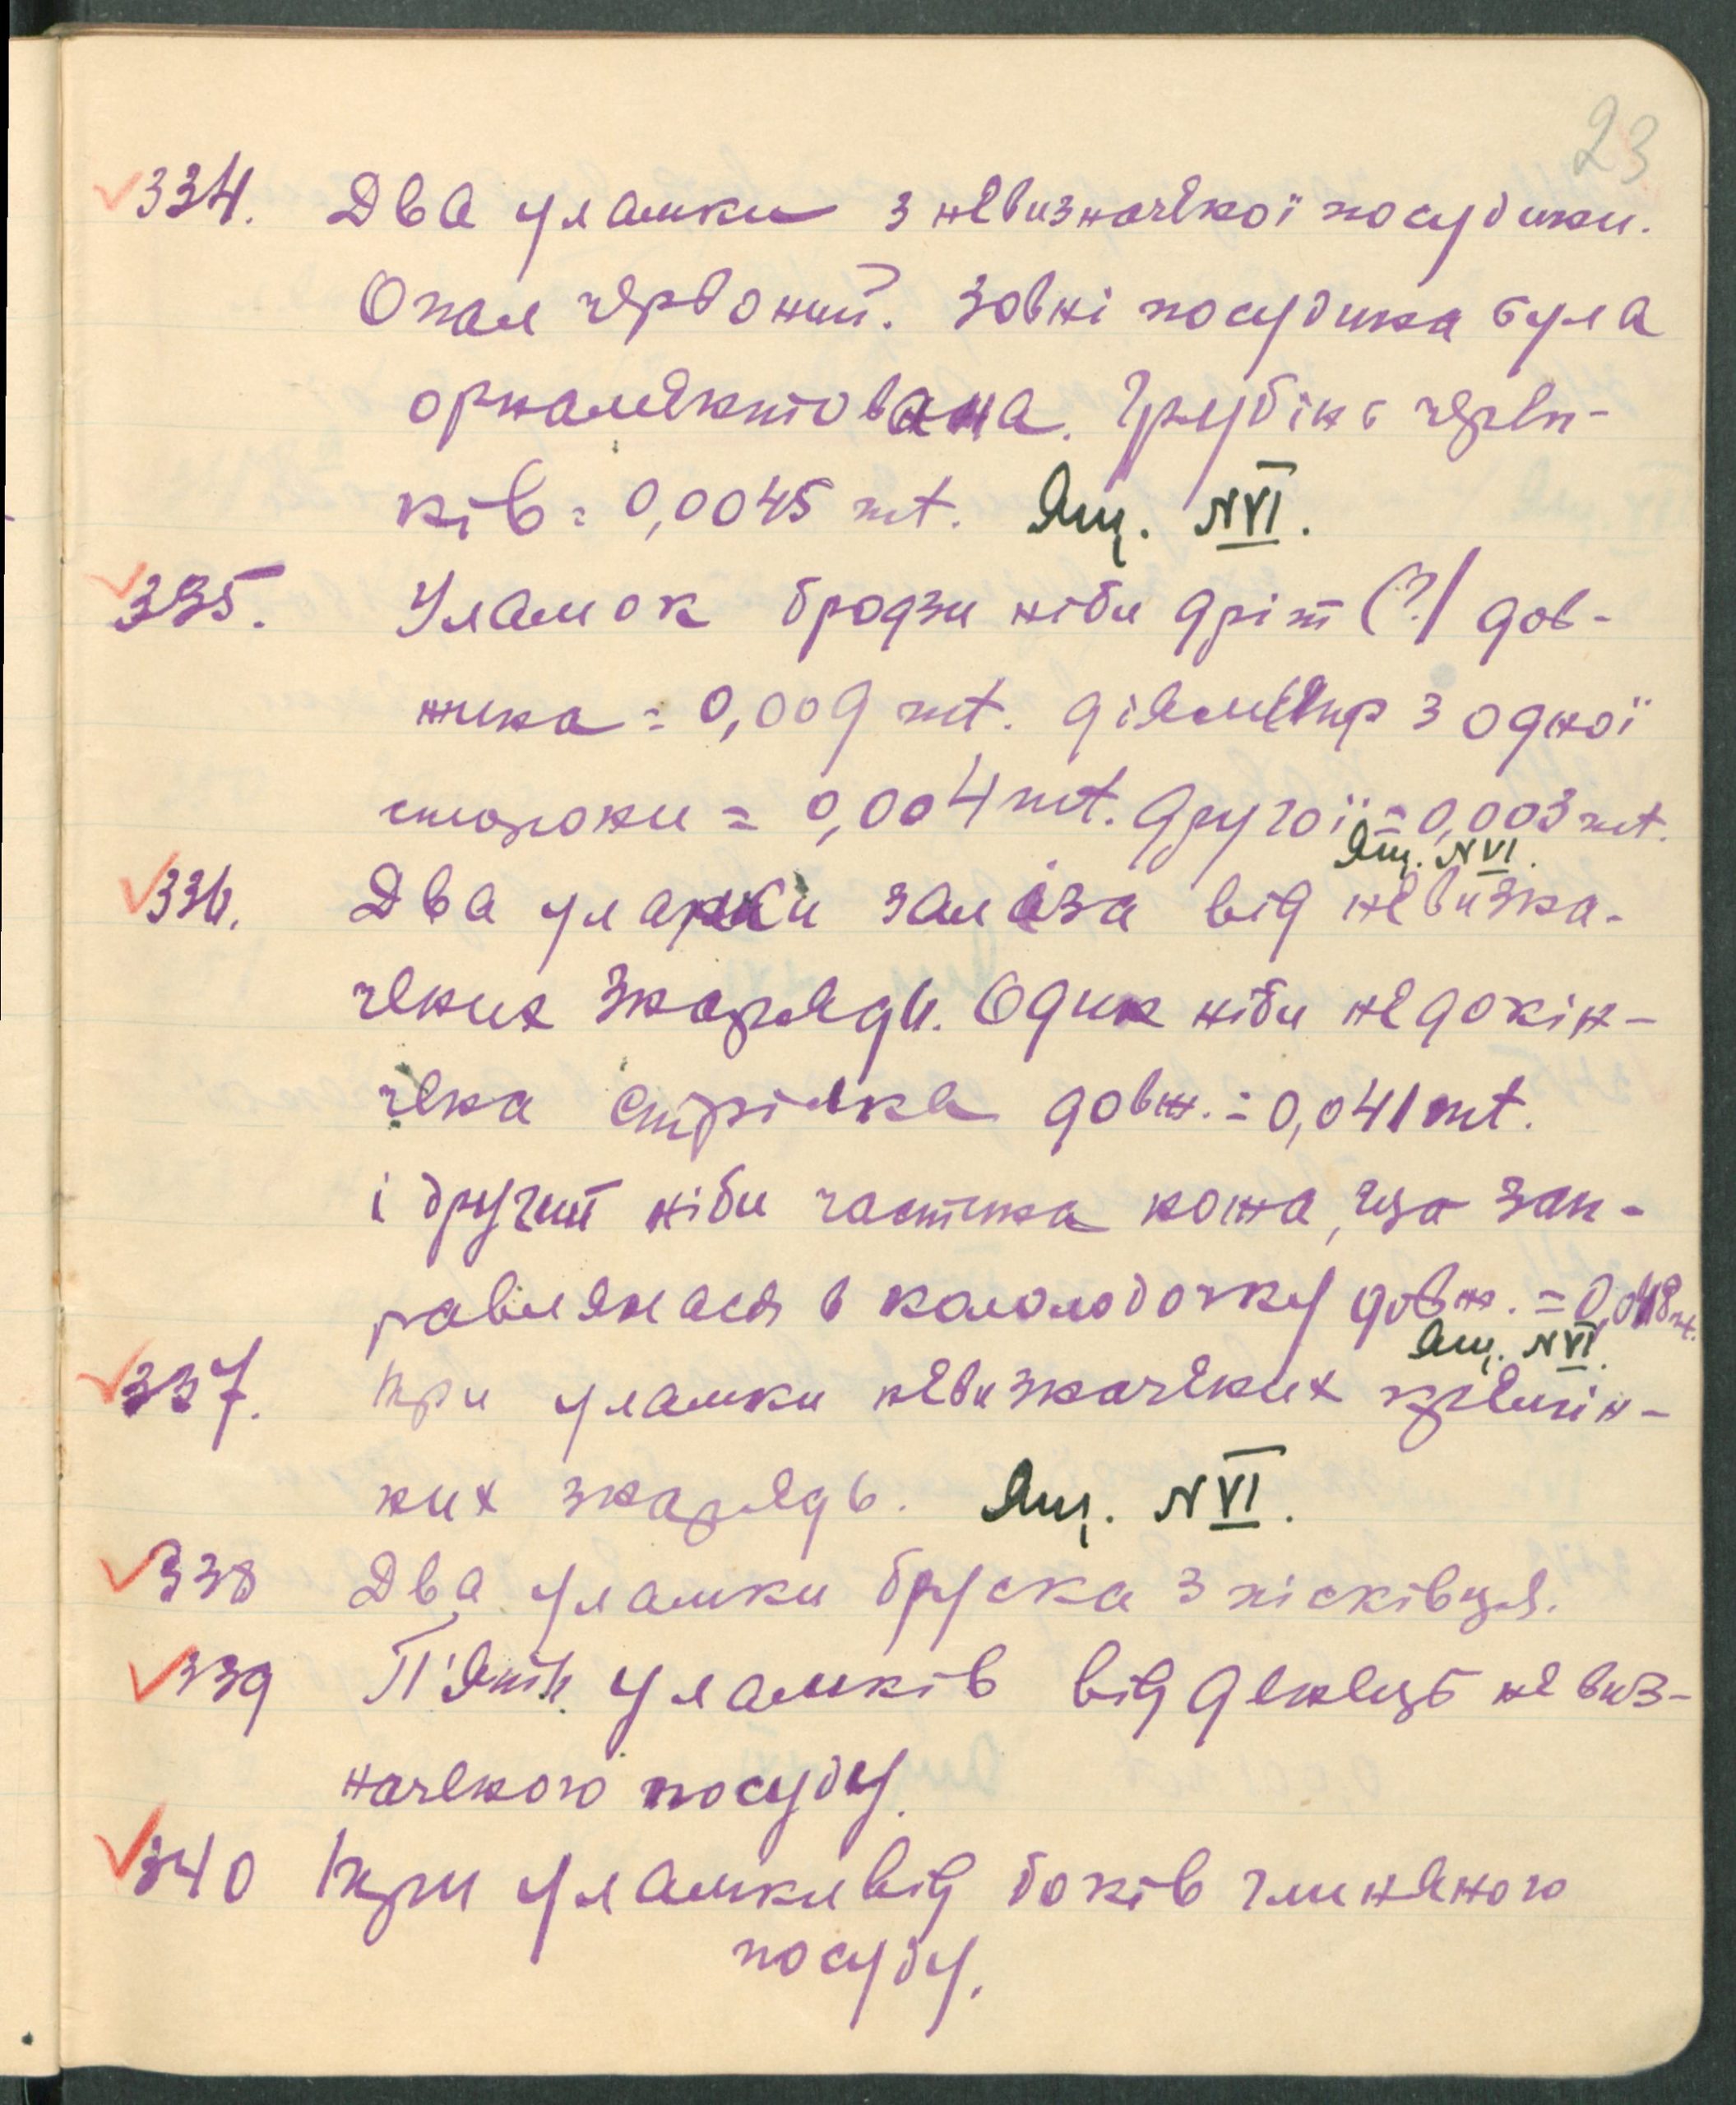 23
334. Два уламки з невизначеної посудини.
Опал червоний. Зовні посудина була
орнаментована. Грубінь череп-
ків = 0,0045 mt. Ящ. № VI.
335. Уламок бродзи ніби дріт (?) дов-
жина = 0,009 mt. діяметр з одної
сторони = 0,004 mt. другої = 0,003 mt.
Ящ. № VI.
336. Два уламки заліза від невизна-
чених знарядь. Один ніби недокін-
чена стрілка довж. = 0,041 mt.
і другий ніби частина ножа, що зап-
равлялася в колодочку довж. = 0,048 mt.
Ящ. № VI.
337. Три уламки невизначених кремін-
них знарядь. Ящ. № VI.
338 Два уламки бруска з пісківця.
339 П'ять уламків від денець невиз-
наченого посуду.
340 Три уламки від боків глиняного
посуду.